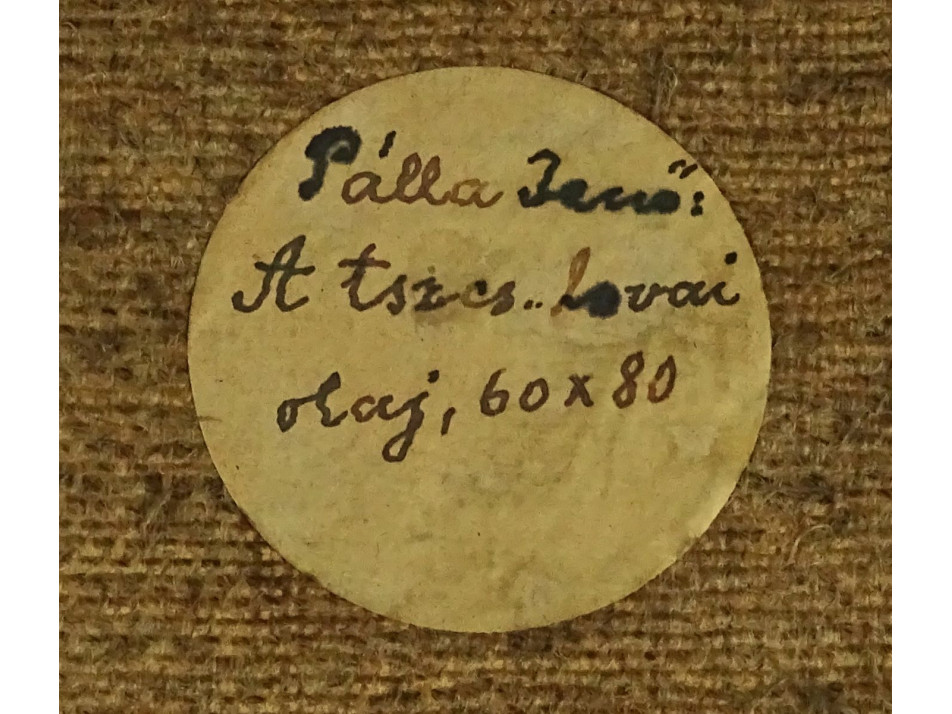 Pálla Jenő:
A tszcs.. lovai
olaj, 60x80